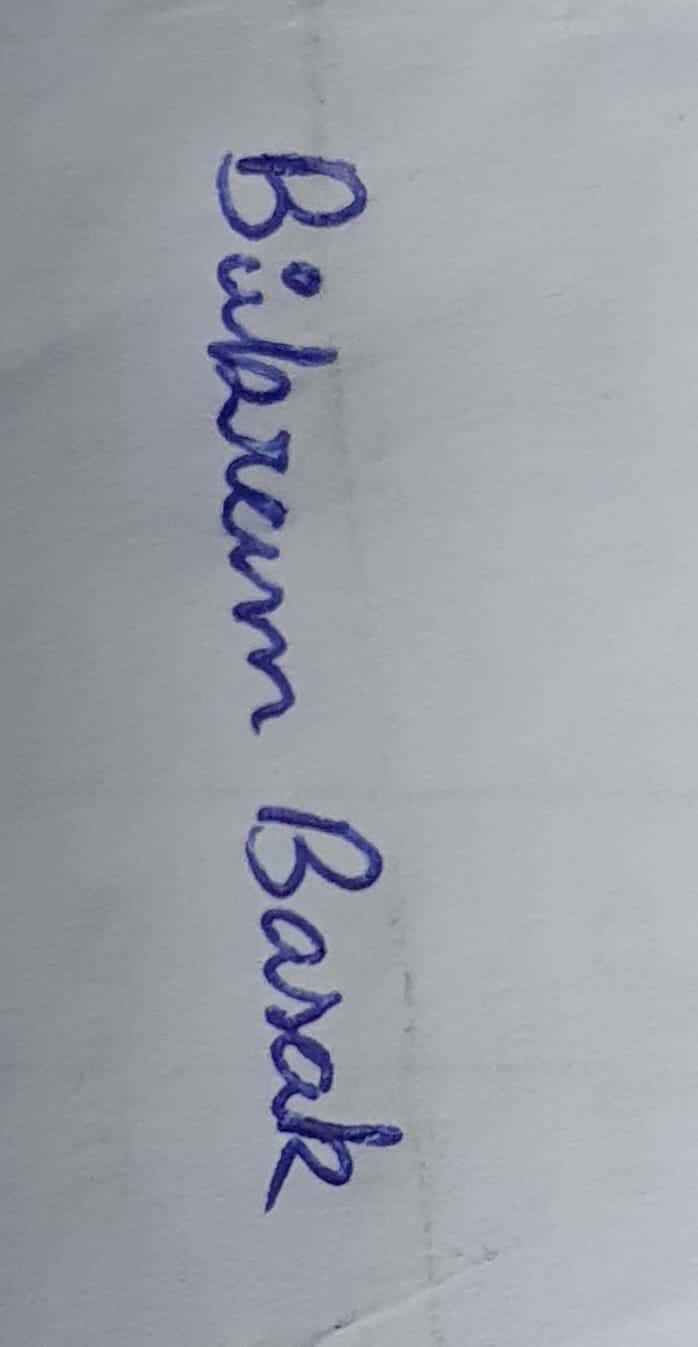 Bikram Basak